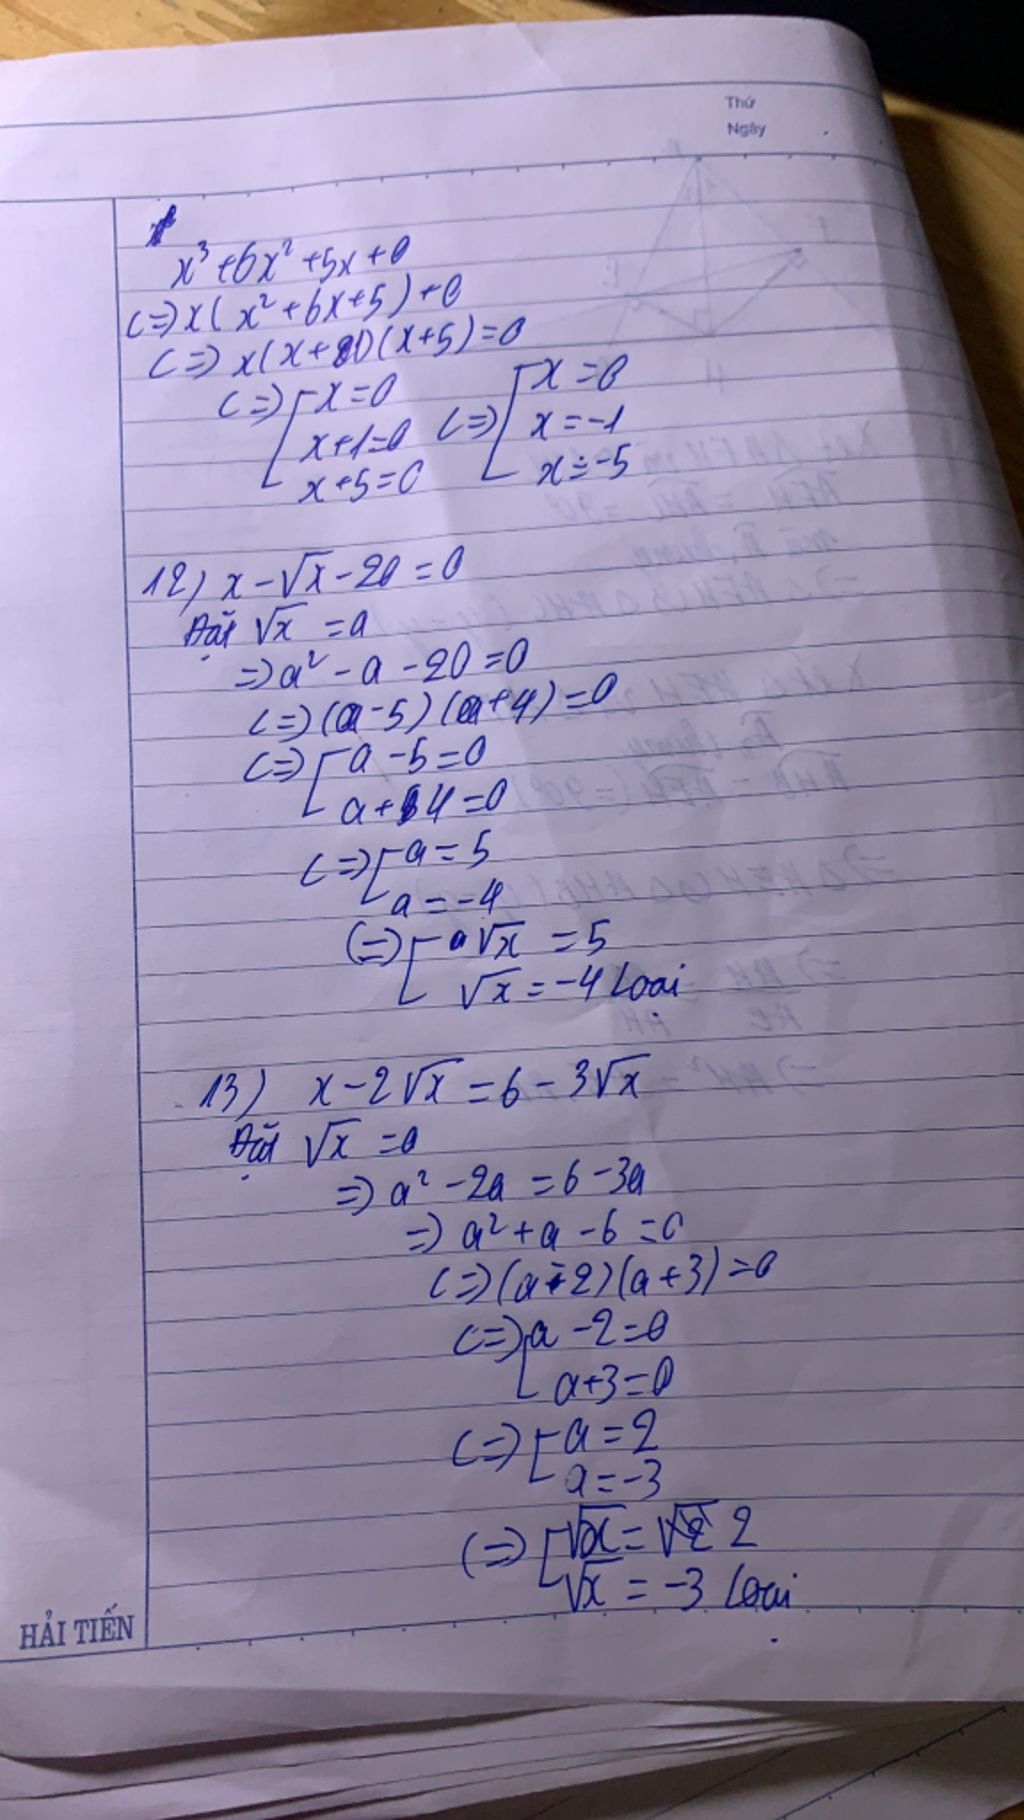 Thứ
Ngày
x³ + 6x² + 5x + 0
(=) x( x² + 6x + 5 ) + 0
(=) x(x + 1)(x + 5) = 0
(=) [ x = 0 (=) [ x = 0
x + 1 = 0 x = -1
x + 5 = 0 x = -5
12) x - √x - 20 = 0
Đặt √x = a
=) a² - a - 20 = 0
(=) (a - 5) (a + 4) = 0
(=) [ a - 5 = 0
a + 4 = 0
(=) [ a = 5
a = -4
(=) [ √x = 5
√x = -4 Loại
13) x - 2√x = 6 - 3√x
Đặt √x = a
=) a² - 2a = 6 - 3a
=) a² + a - 6 = 0
(=) (a - 2) (a + 3) = 0
(=) [ a - 2 = 0
a + 3 = 0
(=) [ a = 2
a = -3
(=) [ √x = 2
√x = -3 Loại
HẢI TIẾN